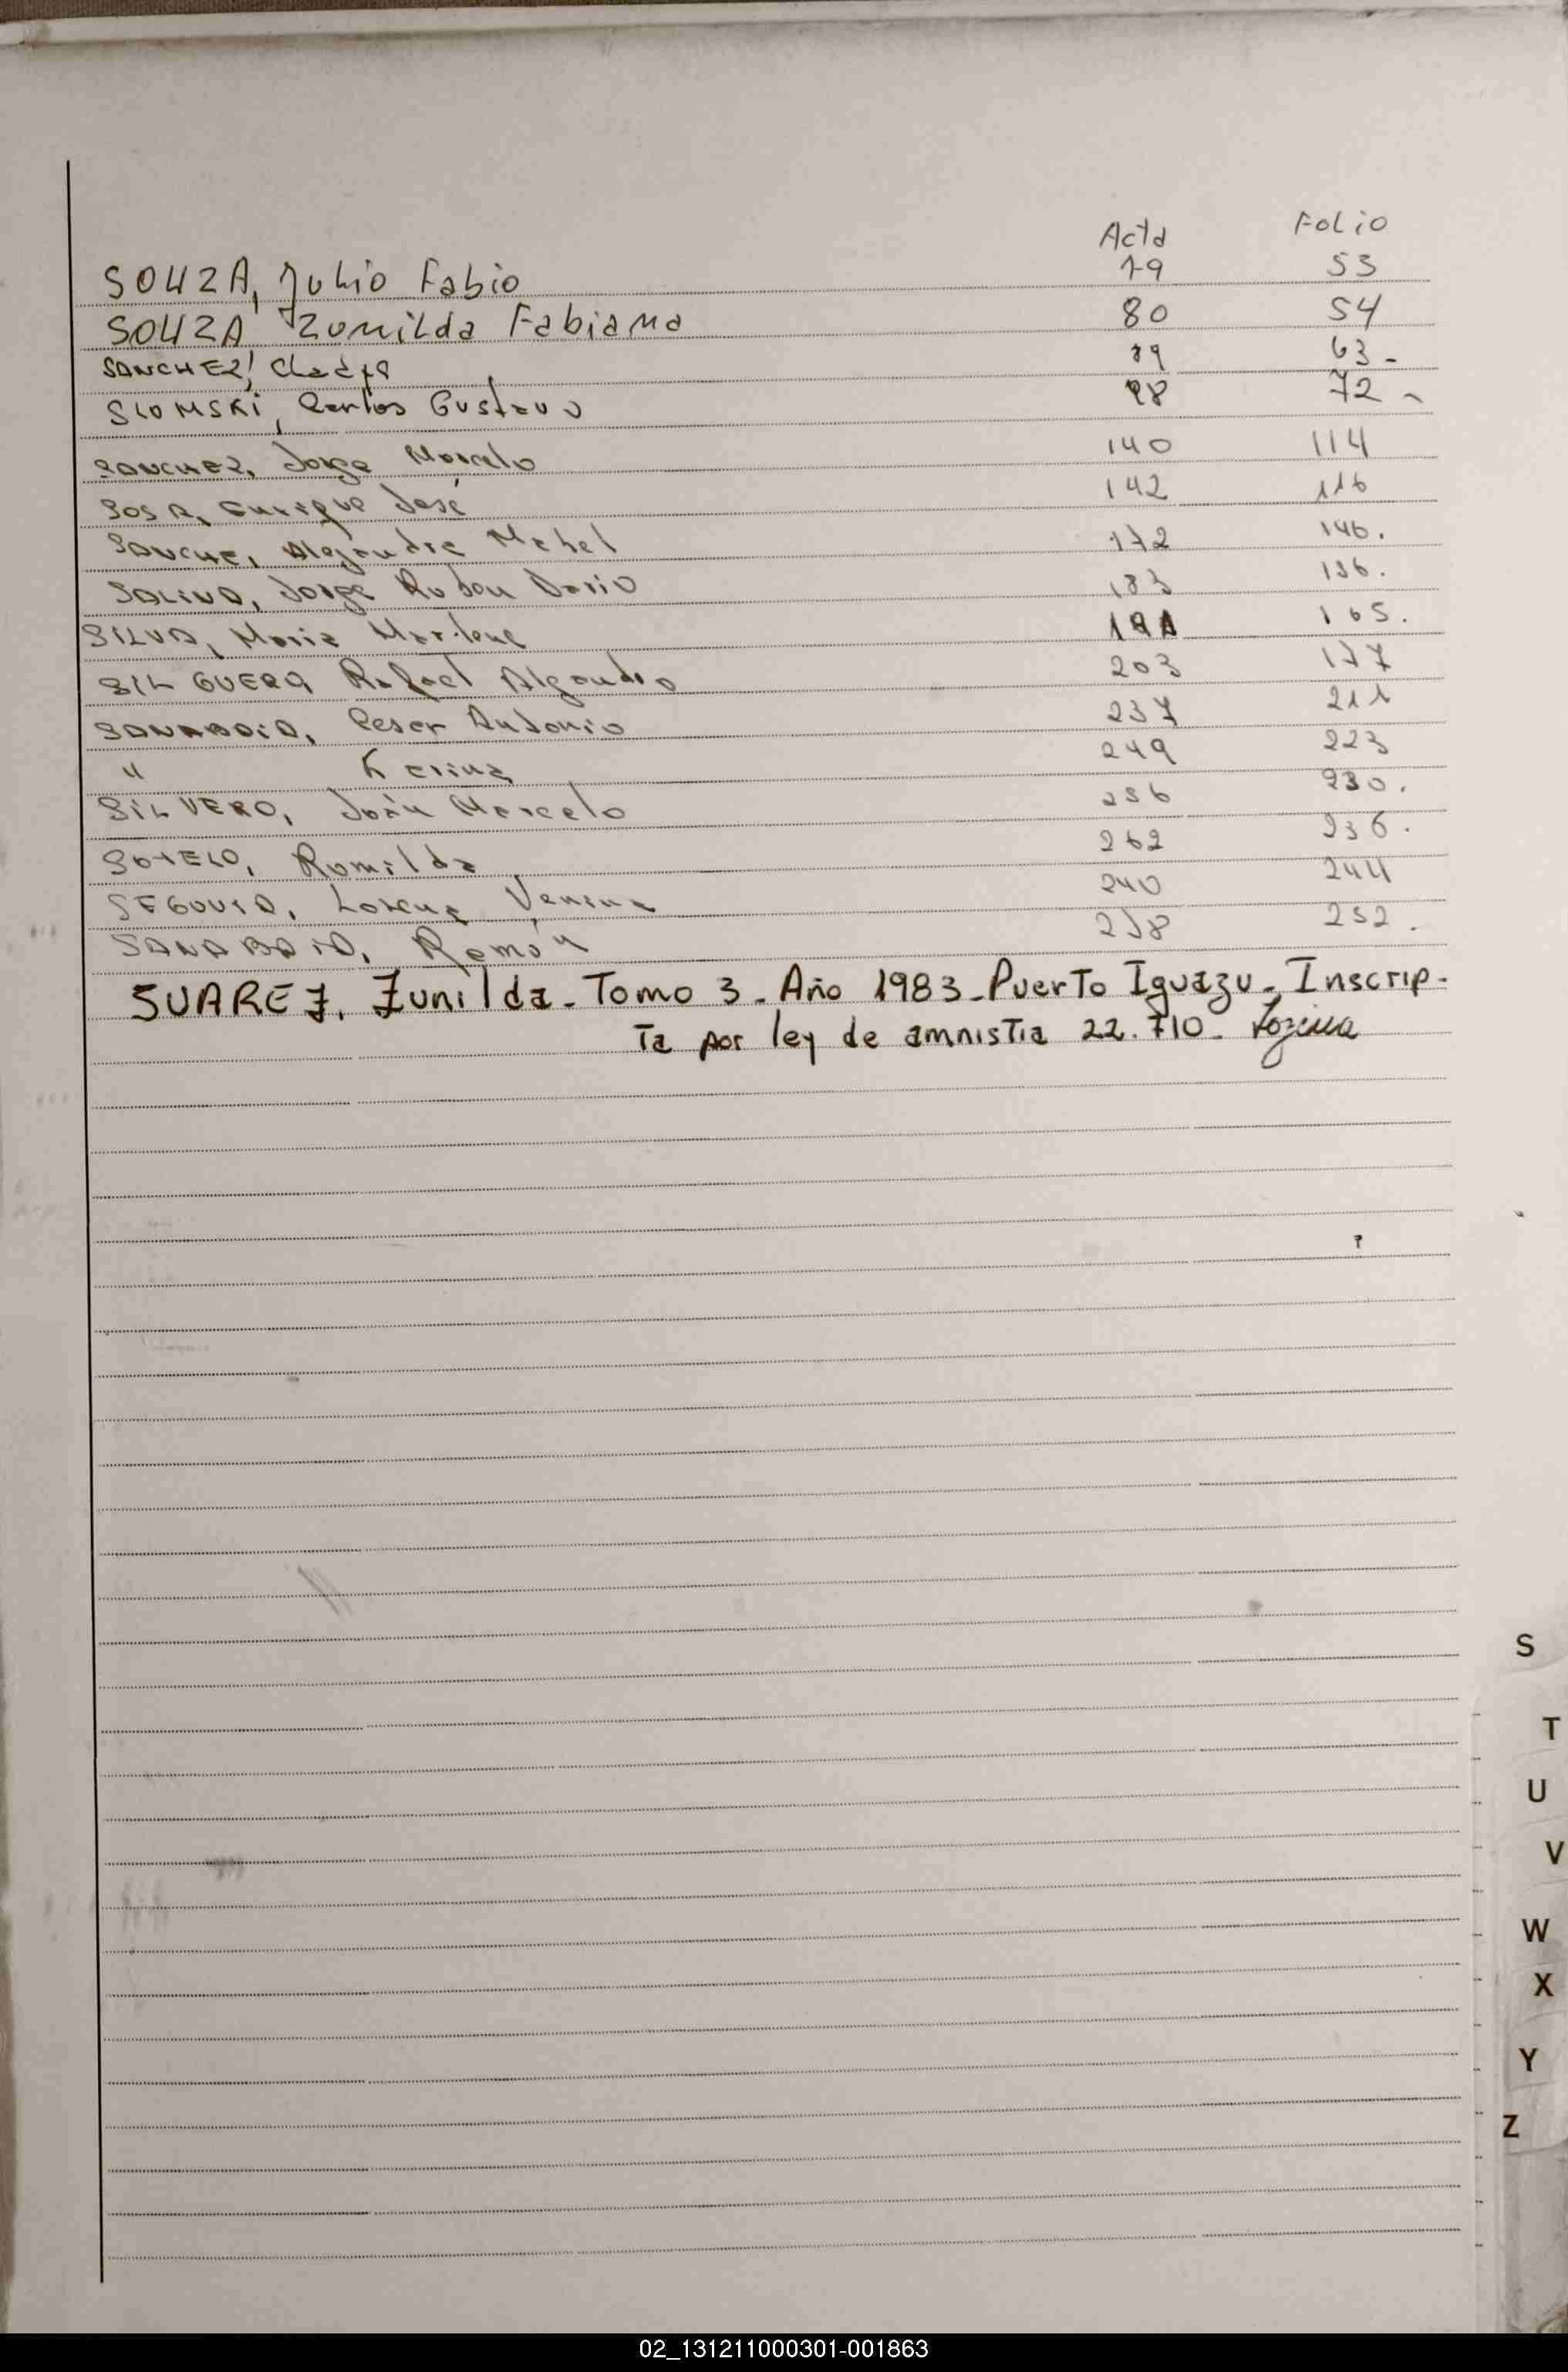 Acta Folio
SOUZA, Julio Fabio 79 53
SOUZA Zunilda Fabiana 80 54
SANCHEZ, 89 63-
SLOMSKi, Carlos Gustavo 98 72-
SANCHEZ, Jorge Marcelo 140 114
SOSA, Enrique José 142 116
SANCHE, Alejandra Mabel 172 146.
SALINA, Jorge Ruben Dario 183 156.
SILVA, Maria Marlene 191 165.
SILGUERO, Rafael Alejandro 203 177
SANABRIA, Cesar Antonio 237 211
" Karina 249 223
SILVERO, Juan Marcelo 256 230.
SOTELO, Romilda 262 236.
SEGOVIA, Lorena 244
SANABRIA, Ramón 252.
SUAREZ, Zunilda. Tomo 3. Año 1983-Puerto Iguazu-Inscrip-
Ta por ley de amnistia 22.710.
S
T
U
V
W
X
Y
Z
02_131211000301-001863